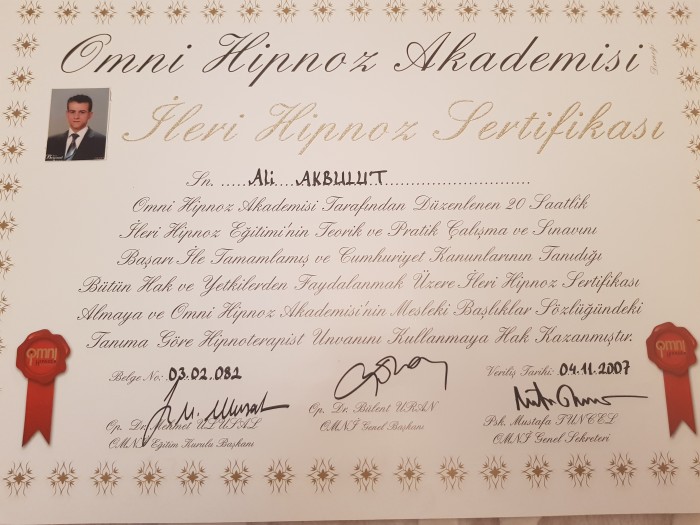 Omni Hipnoz Akademisi
İleri Hipnoz Sertifikası
Sn. ......Ali AKBULUT..............................
Omni Hipnoz Akademisi Tarafından Düzenlenen 20 Saatlik
İleri Hipnoz Eğitimi'nin Teorik ve Pratik Çalışma ve Sınavını
Başarı İle Tamamlamış ve Cumhuriyet Kanunlarının Tanıdığı
Bütün Hak ve Yetkilerden Faydalanmak Üzere İleri Hipnoz Sertifikası
Almaya ve Omni Hipnoz Akademisi'nin Mesleki Başlıklar Sözlüğündeki
Tanıma Göre Hipnoterapist Unvanını Kullanmaya Hak Kazanmıştır.
Belge No: 03.02.082
Veriliş Tarihi: 04.11.2007
Op. Dr. Mehmet
OMNİ Eğitim Kurulu Başkanı
Op. Dr. Bülent URAN
OMNİ Genel Başkanı
Psk. Mustafa TUNCEL
OMNİ Genel Sekreteri
omni
omni